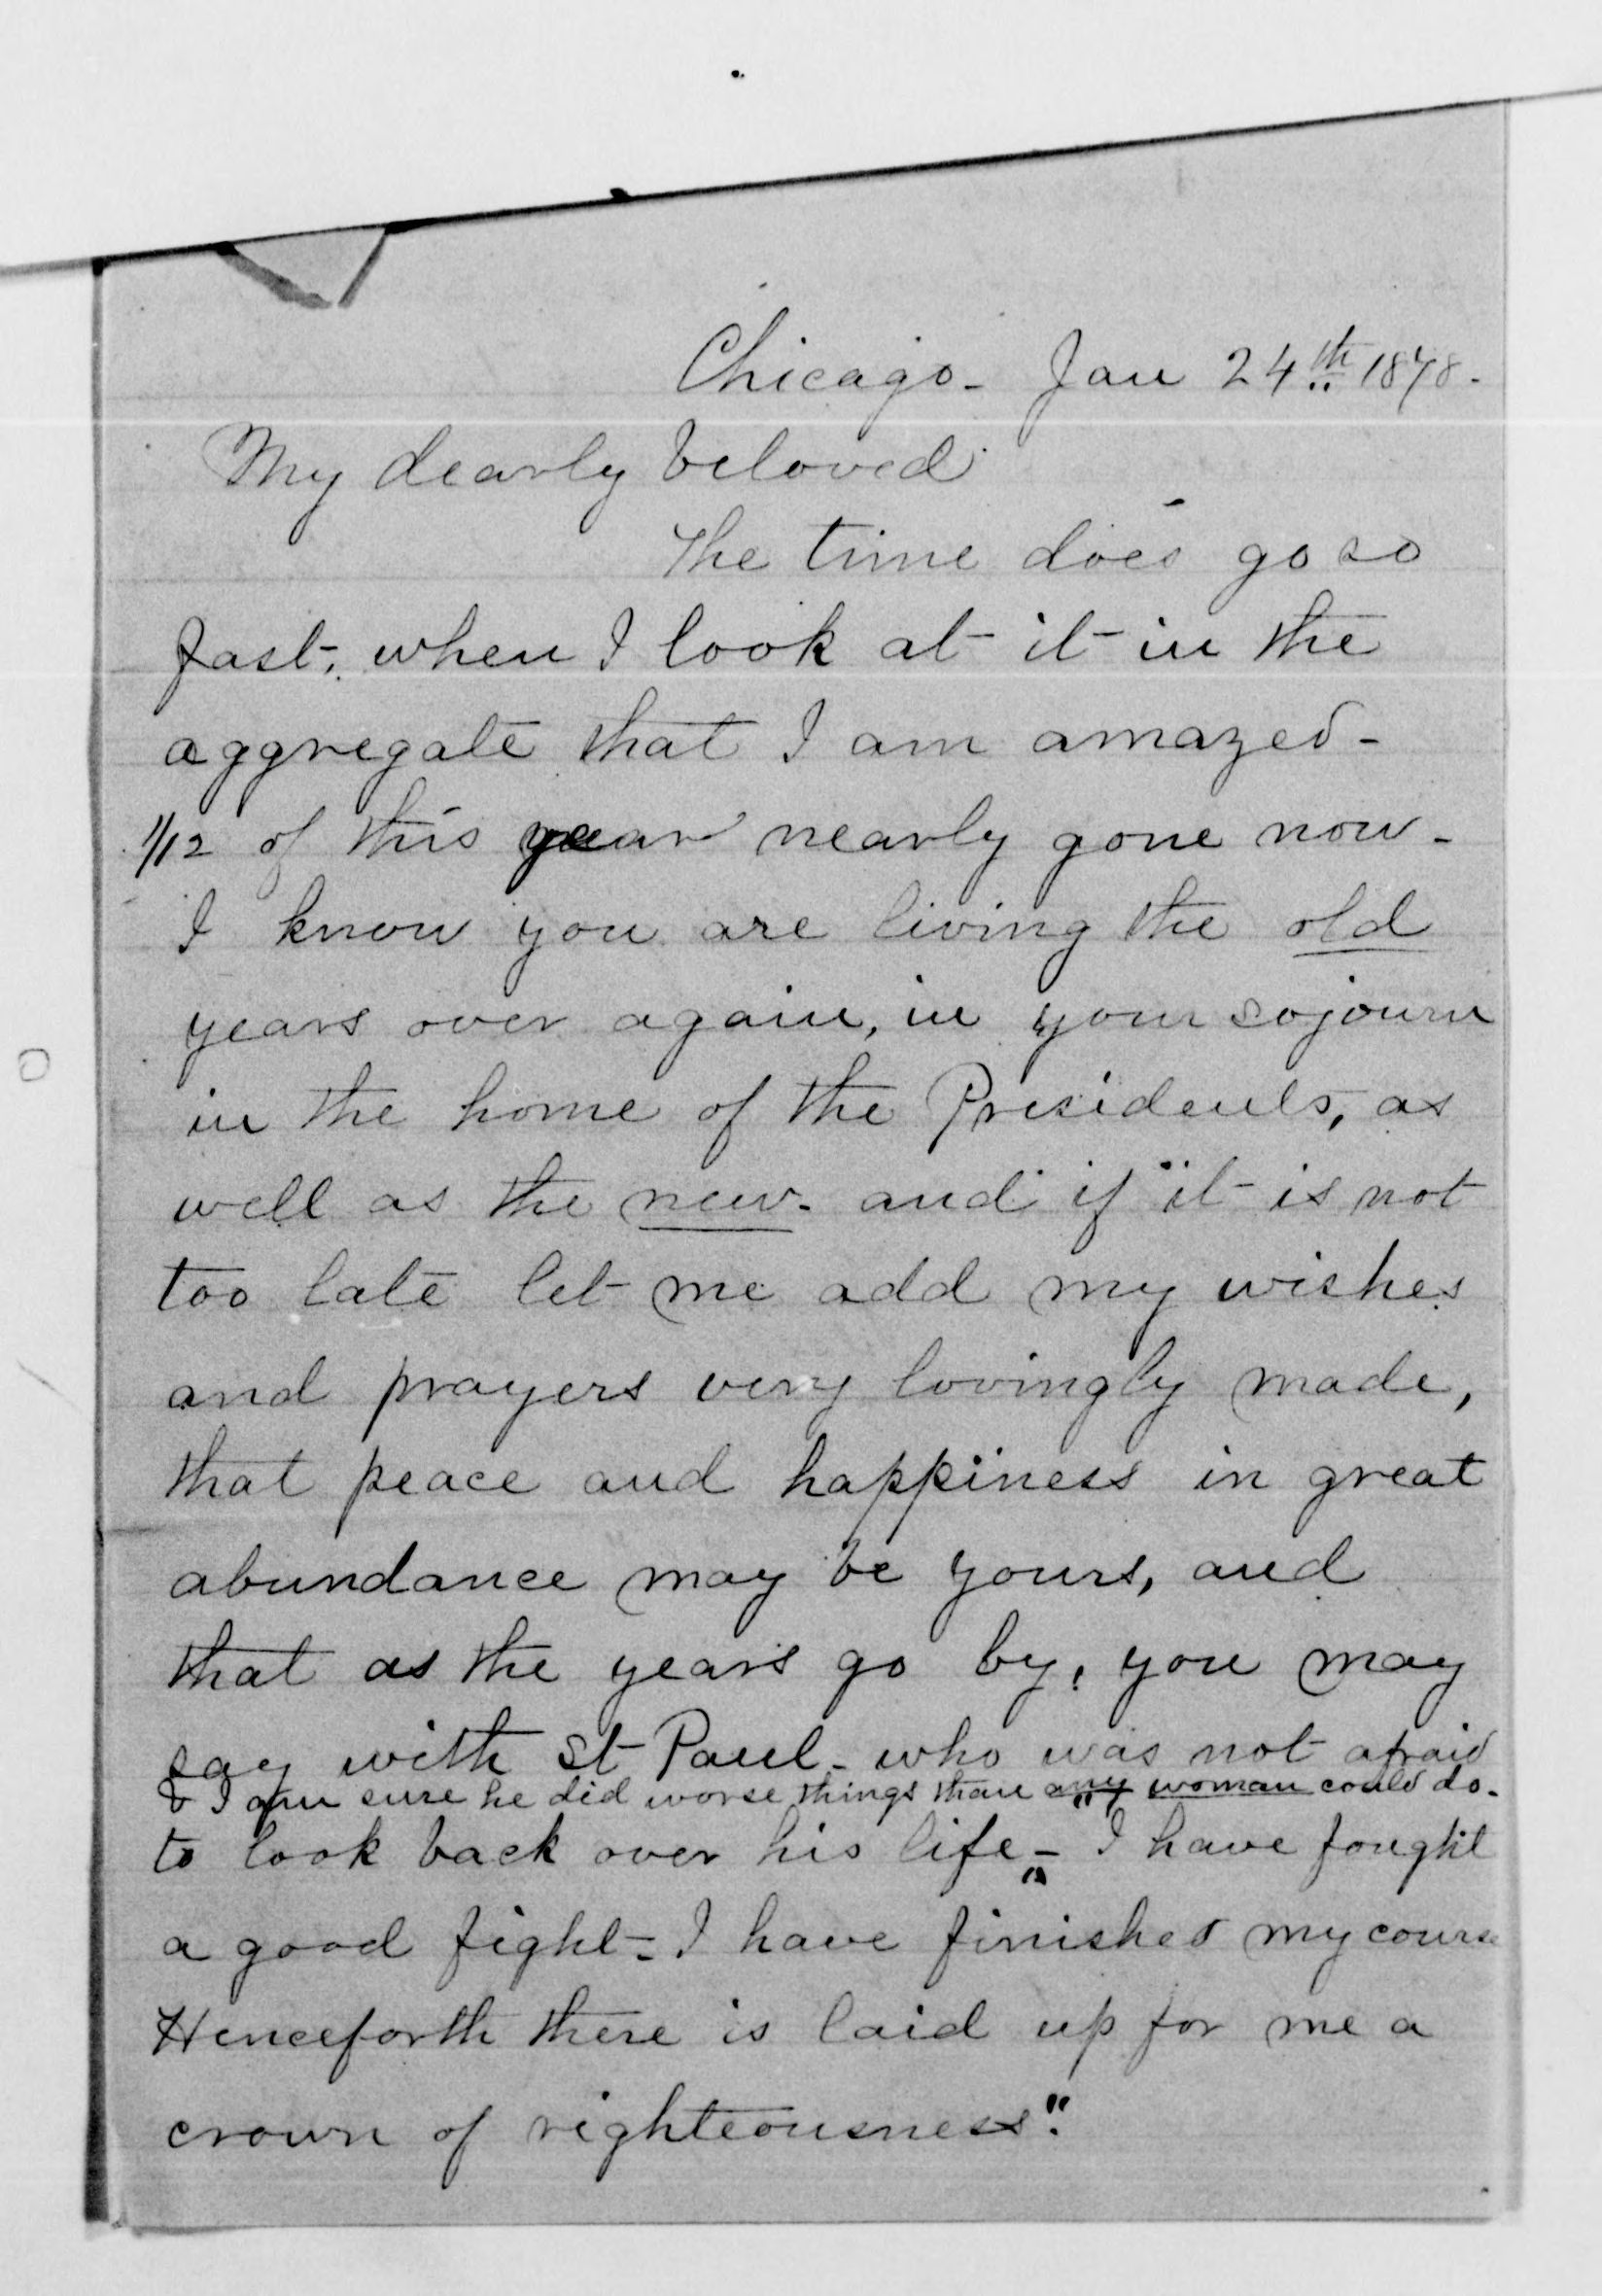 Chicago - Jan 24th 1878.
My dearly beloved
The time does go so
fast, when I look at it in the
aggregate that I am amazed -
1/12 of this year nearly gone now -
I know you are living the old
years over again, in your sojourn
in the home of the Presidents, as
well as the new - and if it is not
too late let me add my wishes
and prayers very lovingly made,
that peace and happiness in great
abundance may be yours, and
that as the years go by, you may
say with St Paul - who was not afraid
& I am sure he did worse things than any woman could do -
to look back over his life - "I have fought
a good fight - I have finished my course
Henceforth there is laid up for me a
crown of righteousness".